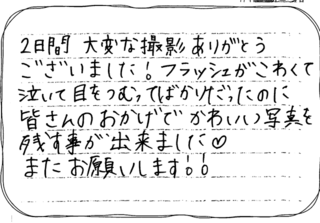 2日間 大変な撮影ありがとう
ございました!フラッシュがこわくて
泣いて目をつむってばかりだったのに
皆さんのおかげで かわいい写真を
残す事が出来ました♡
またお願いします!!